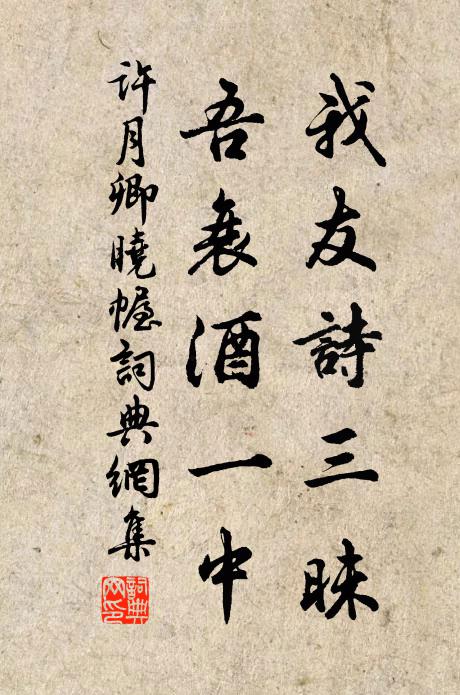 我友詩三昧
吾衰酒一中
許月卿曉幄詞典網集
詞典網印